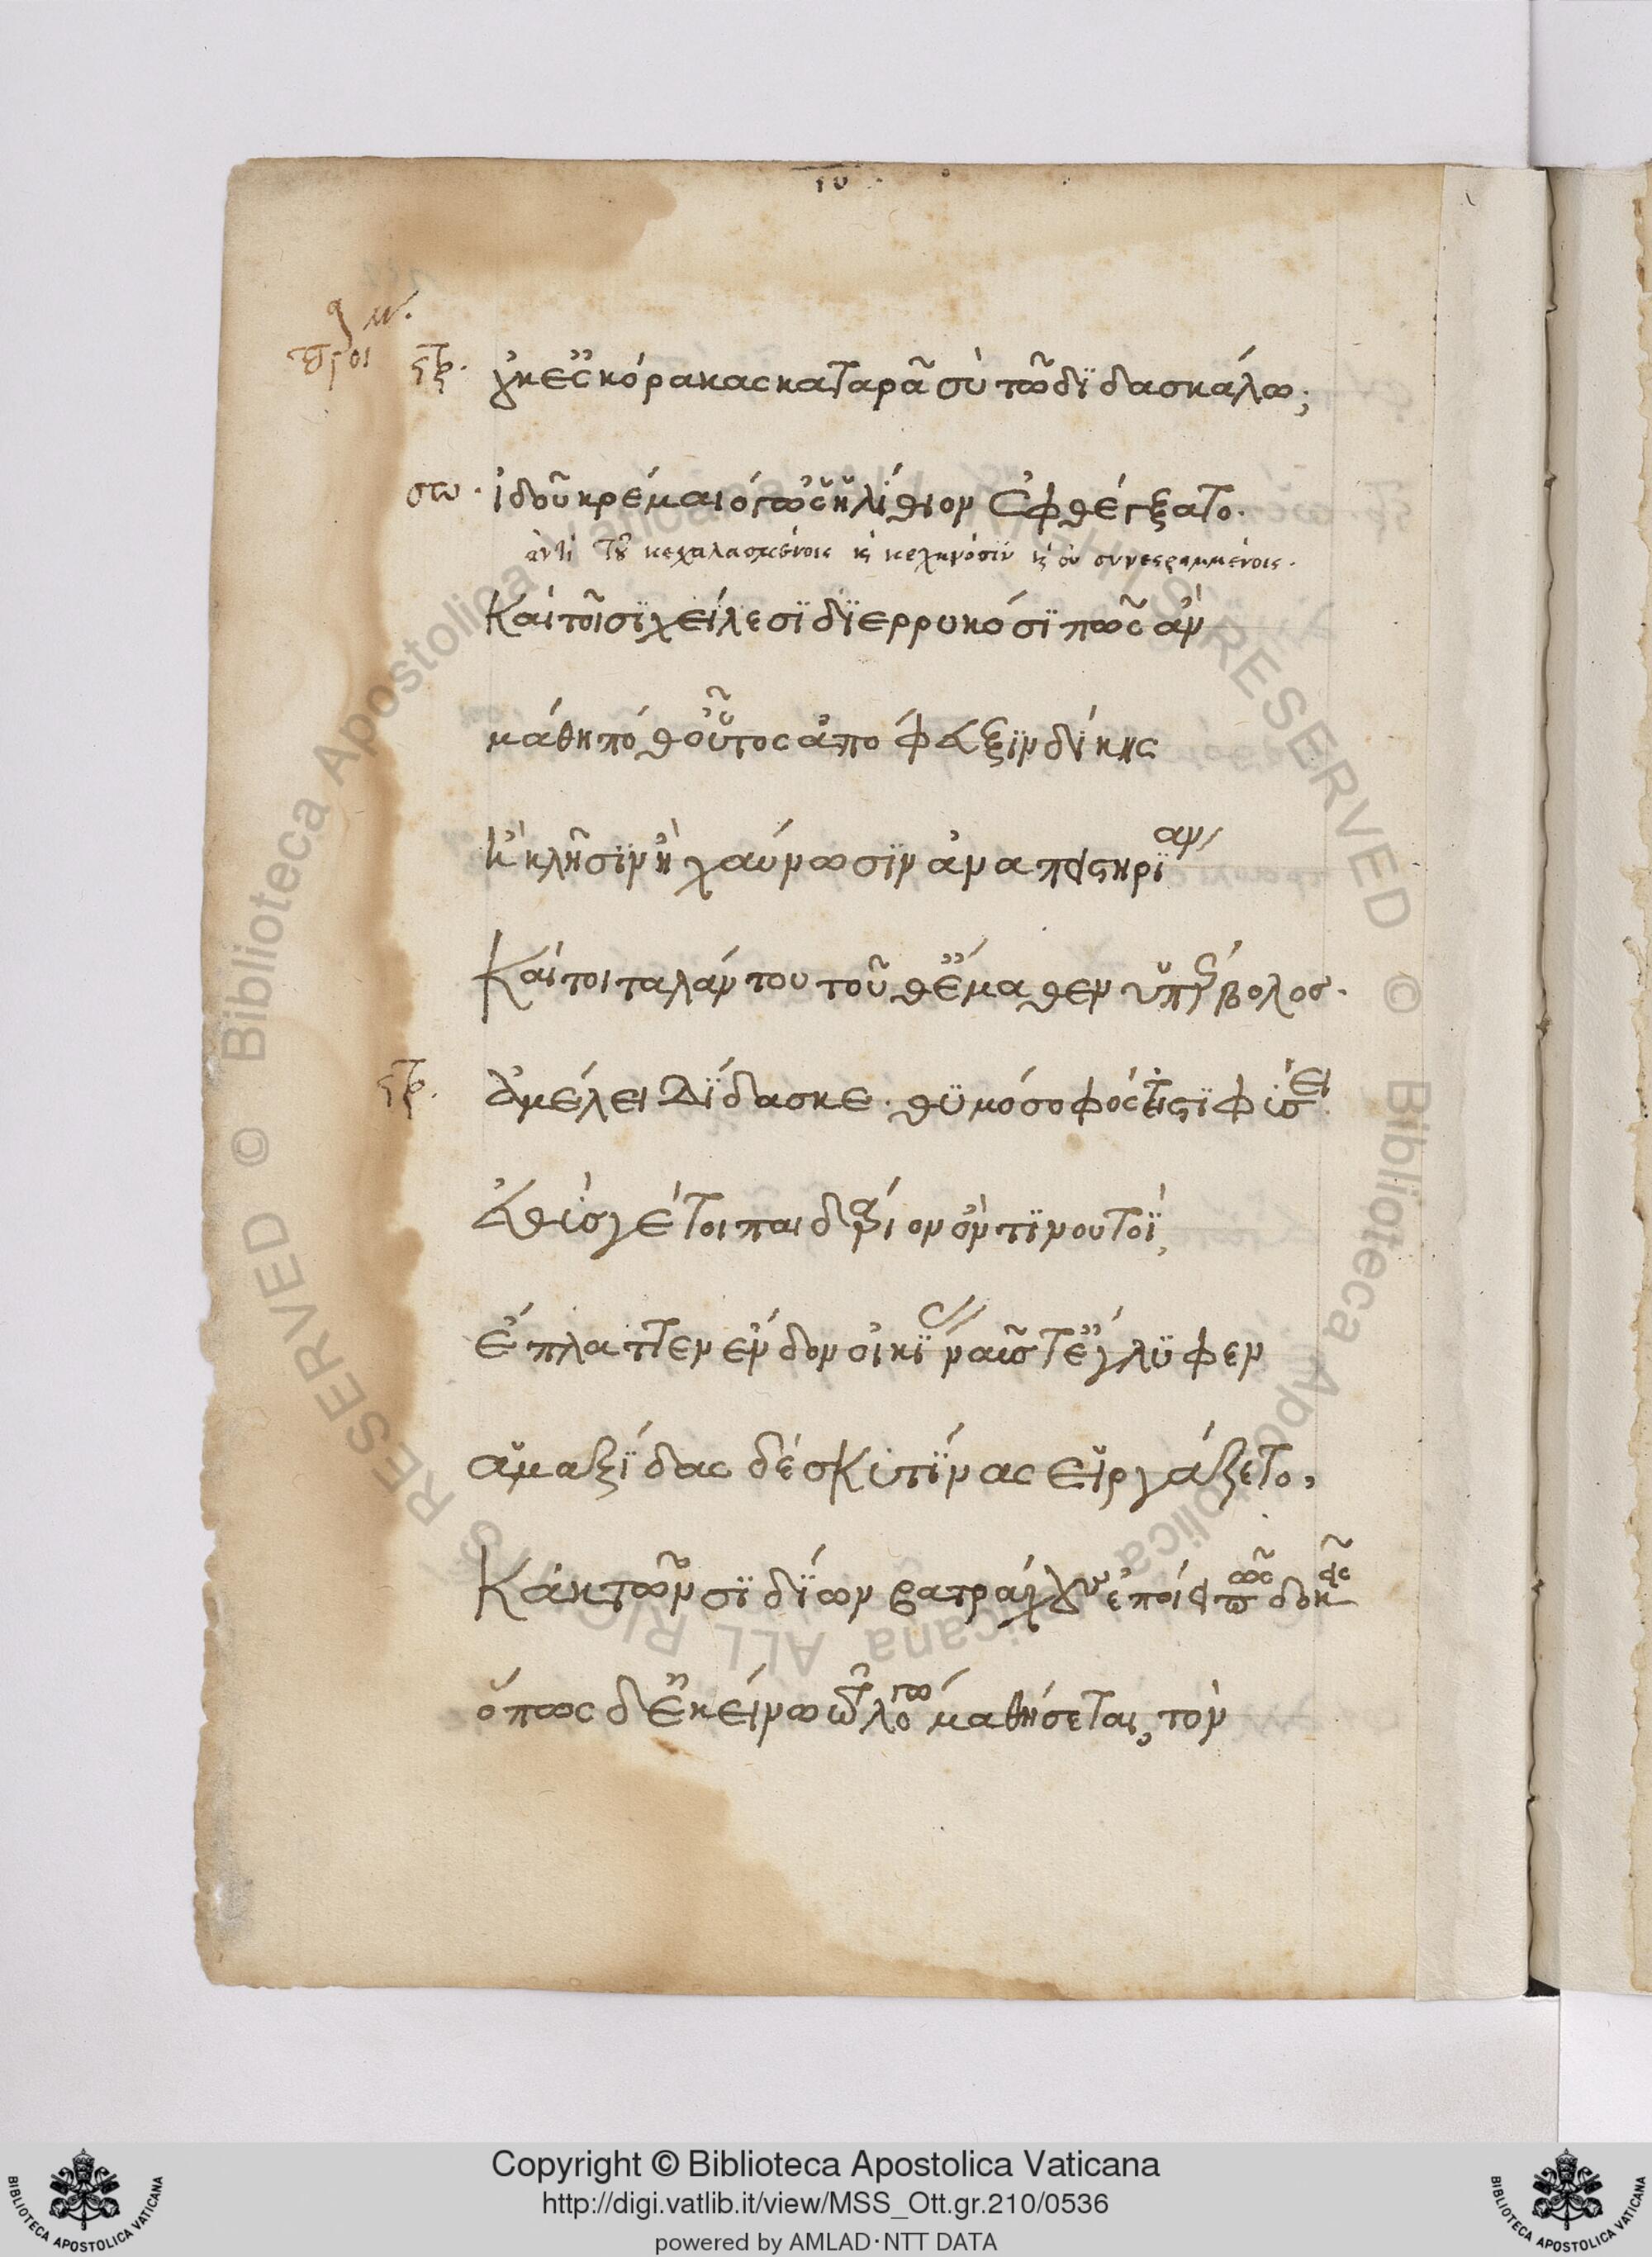 στρ. οὐκ ἐς κόρακας καταρᾶ σὺ τῶ διδασκάλω;
σω. ἰδοῦ κρέμαιό γ' ὡς ἠλίθιον ἐφθέγξατο.
ἀντὶ τοῦ κεχαλασμένοις καὶ κεχηνόσιν καὶ οὐ συνεστραμμένοις.
Καὶ τοῖσι χείλεσι διερρυκόσι πῶς ἂν
μάθη πόθ' οὗτος ἀπόφευξιν δίκης
ἢ κλῆσιν ἢ χαύνωσιν ἀναπειστηρίαν
Καίτοι ταλάντου τοῦθ' ἔμαθεν ὑπέρβολος.
στρ. Ἀμέλει Δίδασκε. θυμόσοφός τίς ἐστι φύσει
Εὐθύς γέ τοι παιδάριον ὂν τινουτοὶ,
ἔπλαττεν ἔνδον οἰκίας ναῦς τ' ἔγλυφεν
ἁμαξίδας δὲ σκυτίνας εἰργάζετο,
Κἀκ τῶν σιδίων βατράχους ἐποίει πῶς δοκεῖς
ὅπως δ' ἐκείνω τὼ λόγω μαθήσεται, τὸν
© Biblioteca Apostolica Vaticana ALL RIGHTS RESERVED © Biblioteca Apostolica Vaticana ALL RIGHTS RESERVED
Copyright © Biblioteca Apostolica Vaticana
http://digi.vatlib.it/view/MSS_Ott.gr.210/0536
powered by AMLAD·NTT DATA
BIBLIOTECA APOSTOLICA VATICANA
BIBLIOTECA APOSTOLICA VATICANA